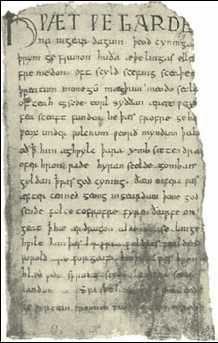 HǷÆT ǷE GARDE
na ingear dagum þeod cyninga
þrym ge frunon huða æþelingas elle
fremedon. oft scyld scefing sceaþe
þreatum monegū mægþum meodo setla
of teah egsode eorl syððan ærest ƿear
fea sceaft funden he þæs frofre geba
ƿeox under ƿolcnum ƿeorð myndum þah
oð þæt him æghƿylc þara ymb sittendra
ofer hron rade hyran scolde gomban
gyldan þæt ƿæs god cyning. ðæm eafera ƿæs
æfter cenned geong in geardum þone god
sende folce tofrofre fyren ðearfe on
geat þ hie ær drugon aldor ase. lange
hƿile him þæs
ƿorold are for geaf.
blæd ƿide sprang
landum in. Sƿa sceal
ge ƿyrcean fromum